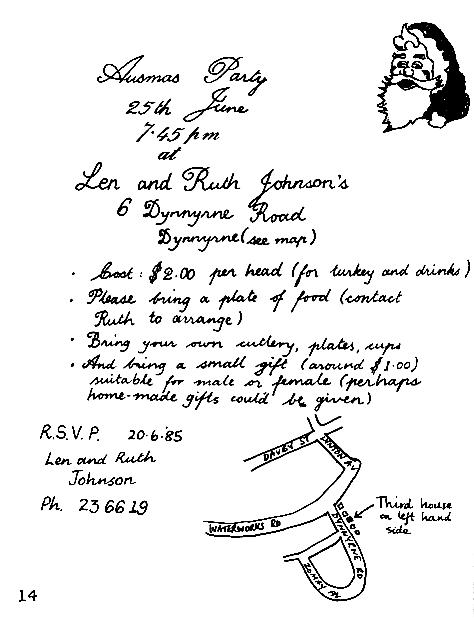 Ausmas Party
25th June
7.45pm
at
Len and Ruth Johnson's
6 Dynnyrne Road
Dynnyrne (see map)
· Cost: $2.00 per head (for turkey and drinks)
· Please bring a plate of food (contact
Ruth to arrange)
· Bring your own cutlery, plates, cups
· And bring a small gift (around $1.00)
suitable for male or female (perhaps
home-made gifts could be given)
R.S.V.P. 20.6.85
Len and Ruth
Johnson
Ph. 236619
DAVEY ST
LYNTON AV
WATERWORKS RD
DYNNYRNE RD
ROMEY AV
Third house
on left hand
side
14